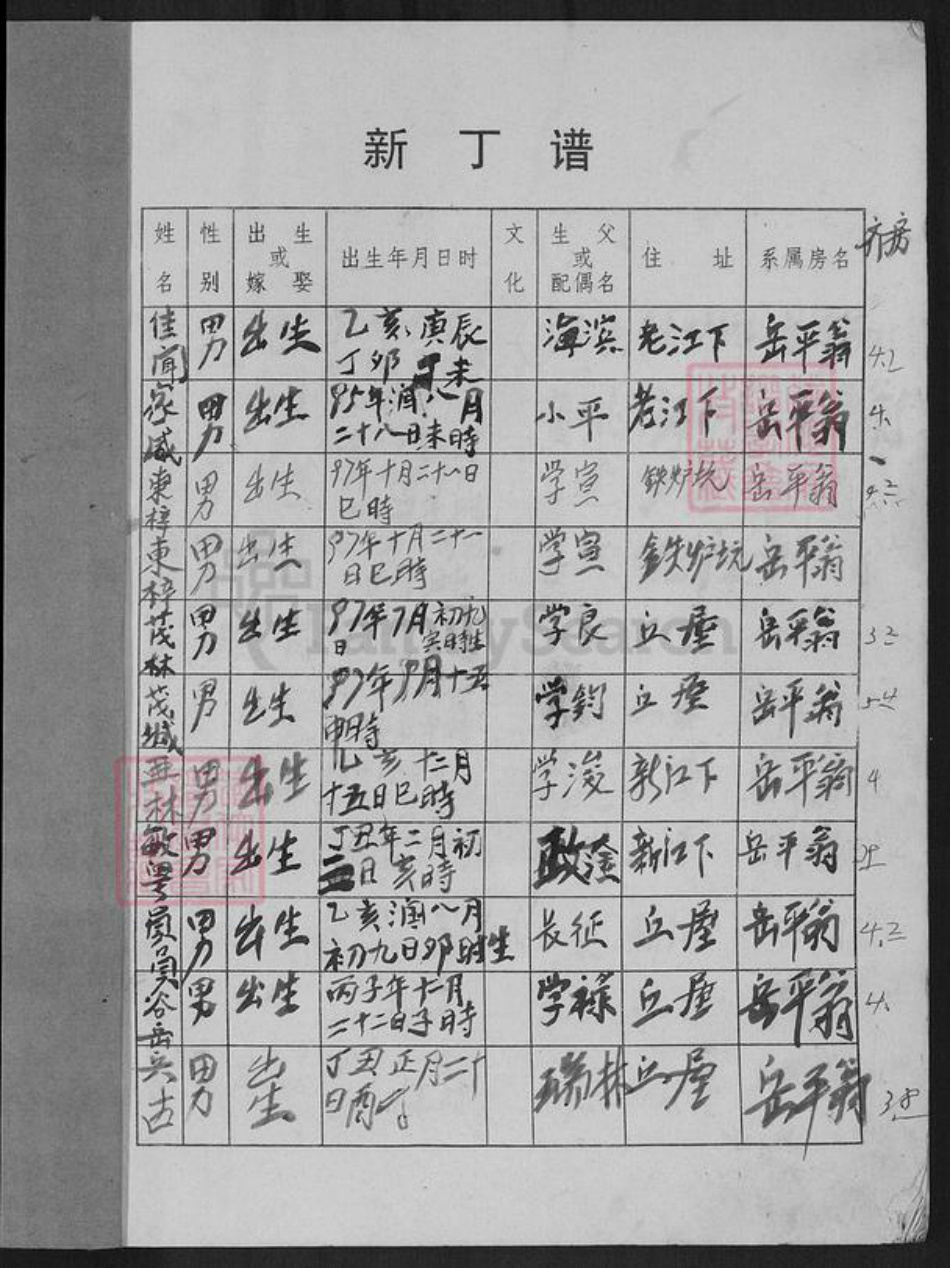 新丁谱
姓名 性别 出生或嫁娶 出生年月日时 文化 生父或配偶名 住址 系属房名 齐房
佳闻 男 出生 乙亥庚辰丁卯丁未 海滨 老江下 岳平翁 4.2
家威 男 出生 95年润八月二十八日未時 小平 老江下 岳平翁 4.
東梓 男 出生 97年十月二十一日巳時 学宣 铁炉坑 岳平翁
東梓 男 出生 97年十月二十一日巳時 学宣 铁炉坑 岳平翁
茂林 男 出生 97年7月初九日寅时生 学良 丘屋 岳平翁 32
茂城 男 出生 97年9月十五申時 学钧 丘屋 岳平翁 54
亚林 男 出生 乙亥十二月十五日巳時 学浚 新江下 岳平翁 4
敏粤 男 出生 丁丑年二月初二日亥時 政淦 新江下 岳平翁
员 男 出生 乙亥润八月初九日卯时生 长征 丘屋 岳平翁 4.2
谷岳 男 出生 丙子年十二月二十二日子時 学禄 丘屋 岳平翁 4.
兵古 男 出生 丁丑正月二十日酉 瑞林 丘屋 岳平翁 38
FamilySearch